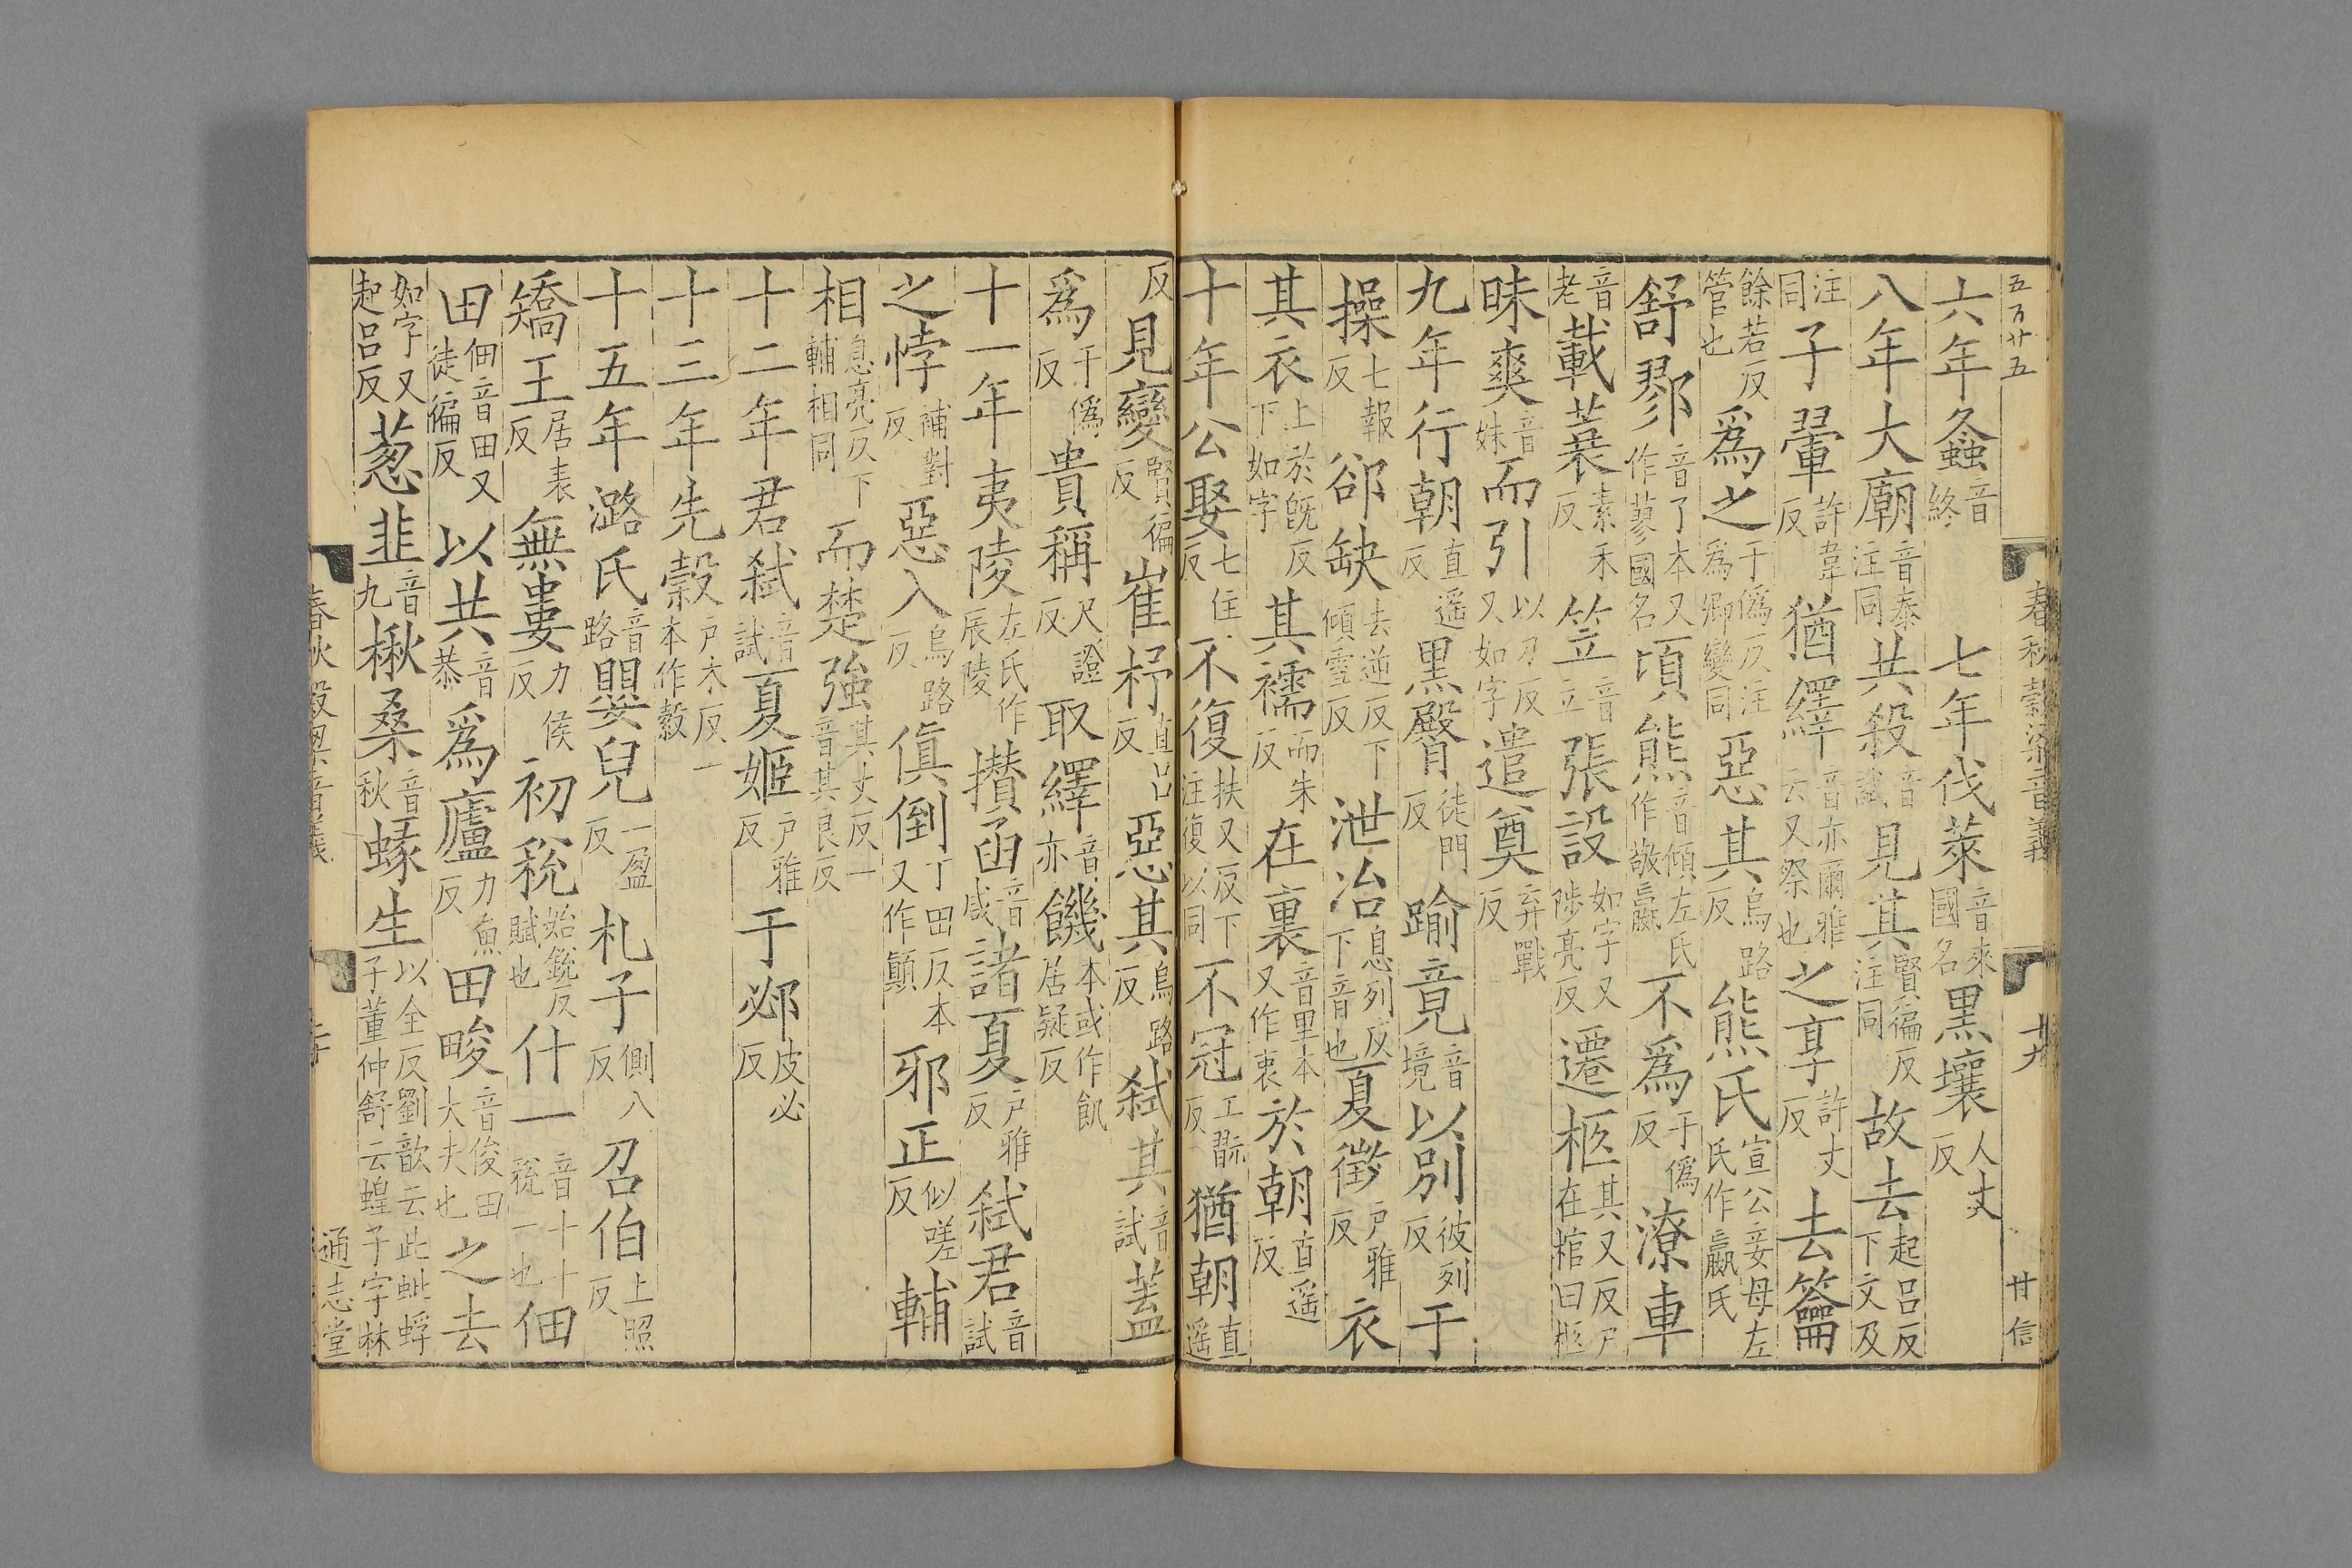 五百廿五 春秋穀梁音義 廿九 廿信
六年螽音終 七年伐萊音來國名黑壤人丈反
八年大廟音泰注同共殺音試見其賢徧反注同故去起呂反下文及
注同子翬許韋反猶繹音亦爾雅云又祭也之享許丈反去籥
餘若反管也為之于偽反注為卿變同惡其烏路反熊氏宣公妾母左氏作嬴氏
舒鄝音了本又作蓼國名頃熊音傾左氏作敬嬴不為于偽反潦車
音老載蓑素禾反笠音立張設如字又陟亮反遷柩其又反尸在棺曰柩
昧爽音妹而引以刃反又如字遣奠弃戰反
九年行朝直遥反黑臀徒門反踰竟音境以別彼列反于
操七報反郤缺去逆反下傾雪反泄冶息列反下音也夏徵戶雅反衣
其衣上於旣反下如字其襦而朱反在裏音里本又作衷於朝直遥反
十年公娶七住反不復扶又反下注復以同不冠工翫反猶朝直遥
反見變賢徧反崔杼直呂反惡其烏路反弒其音試蓋
為于偽反貴稱尺證反取繹音亦饑本或作飢居疑反
十一年夷陵左氏作辰陵攢函音咸諸夏戶雅反弒君音試
之悖補對反惡入烏路反傎倒丁田反本又作顛邪正似嗟反輔
相息亮反下輔相同而楚強其丈反一音其良反
十二年君弒音試夏姬戶雅反于邲皮必反
十三年先縠戶木反一本作穀
十五年潞氏音路嬰兒一盈反札子側八反召伯上照反
矯王居表反無婁力侯反初稅始銳反賦也什一音十十稅一也佃
田佃音田又徒徧反以共音恭為廬力魚反田畯音俊田大夫也之去
如字又起呂反葱韭音九楸桑音秋蝝生以全反劉歆云此蚍蜉子董仲舒云蝗子字林
春秋穀梁音義 通志堂